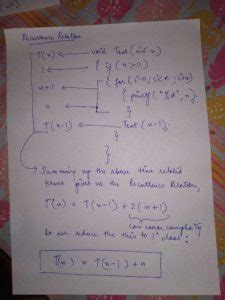 Recurrence Relation
T(n) ← void Test (int n)
1 ← { if (n>0)
n+1 ← { for (i=0; i<n; i++)
n ← { printf ("%d", n);
}
T(n-1) ← Test (n-1);
}
}
Summing up the above time related
terms gives us the Recurrence Relation,
T(n) = T(n-1) + 2(n+1)
can cause complexity
so we reduce the this to 1° class:
T(n) = T(n-1) + n